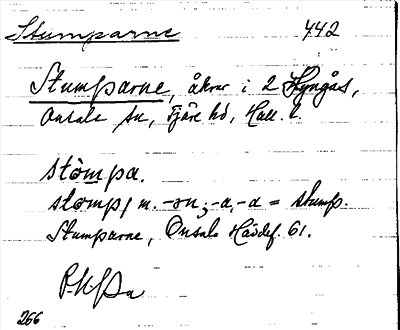 Stumparne 442
Stumparne, åkrar i 2 Lyngås,
Onsala sn, Fjäre hd, Hall. l.
stòmpa.
stomp, m. -ən; -a, -a = stump.
Stumparne, Onsala Hävdef. 61.
266